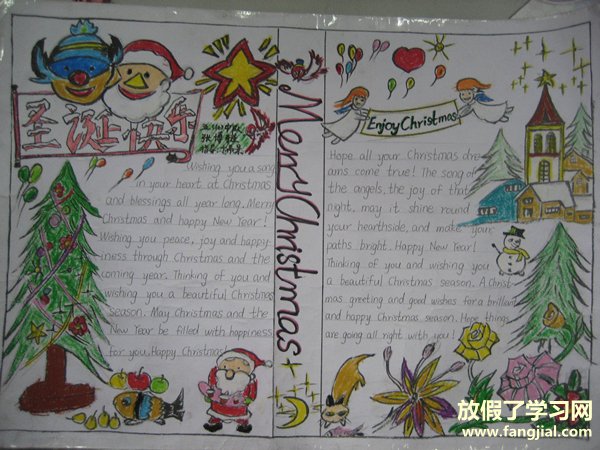 圣诞快乐
Wishing you a song
in your heart at Christmas
and blessings all year long. Merry
Christmas and happy New Year!
Wishing you peace, joy and happy-
iness through Christmas and the
coming year. Thinking of you and
wishing you a beautiful Christmas
season. May Christmas and the
New Year be filled with happiness
for you. Happy Christmas
Merry Christmas
Enjoy Christmas
Hope all your Christmas dre-
ams come true! The song of
the angels, the joy of that
night, may it shine round
your hearthside, and make your
paths bright. Happy New Year!
Thinking of you and wishing you
a beautiful Christmas season. A Christ-
mas greeting and good wishes for a brilliant
and happy Christmas season. Hope things
are going all right with you!
放假了学习网
www.fangjial.com